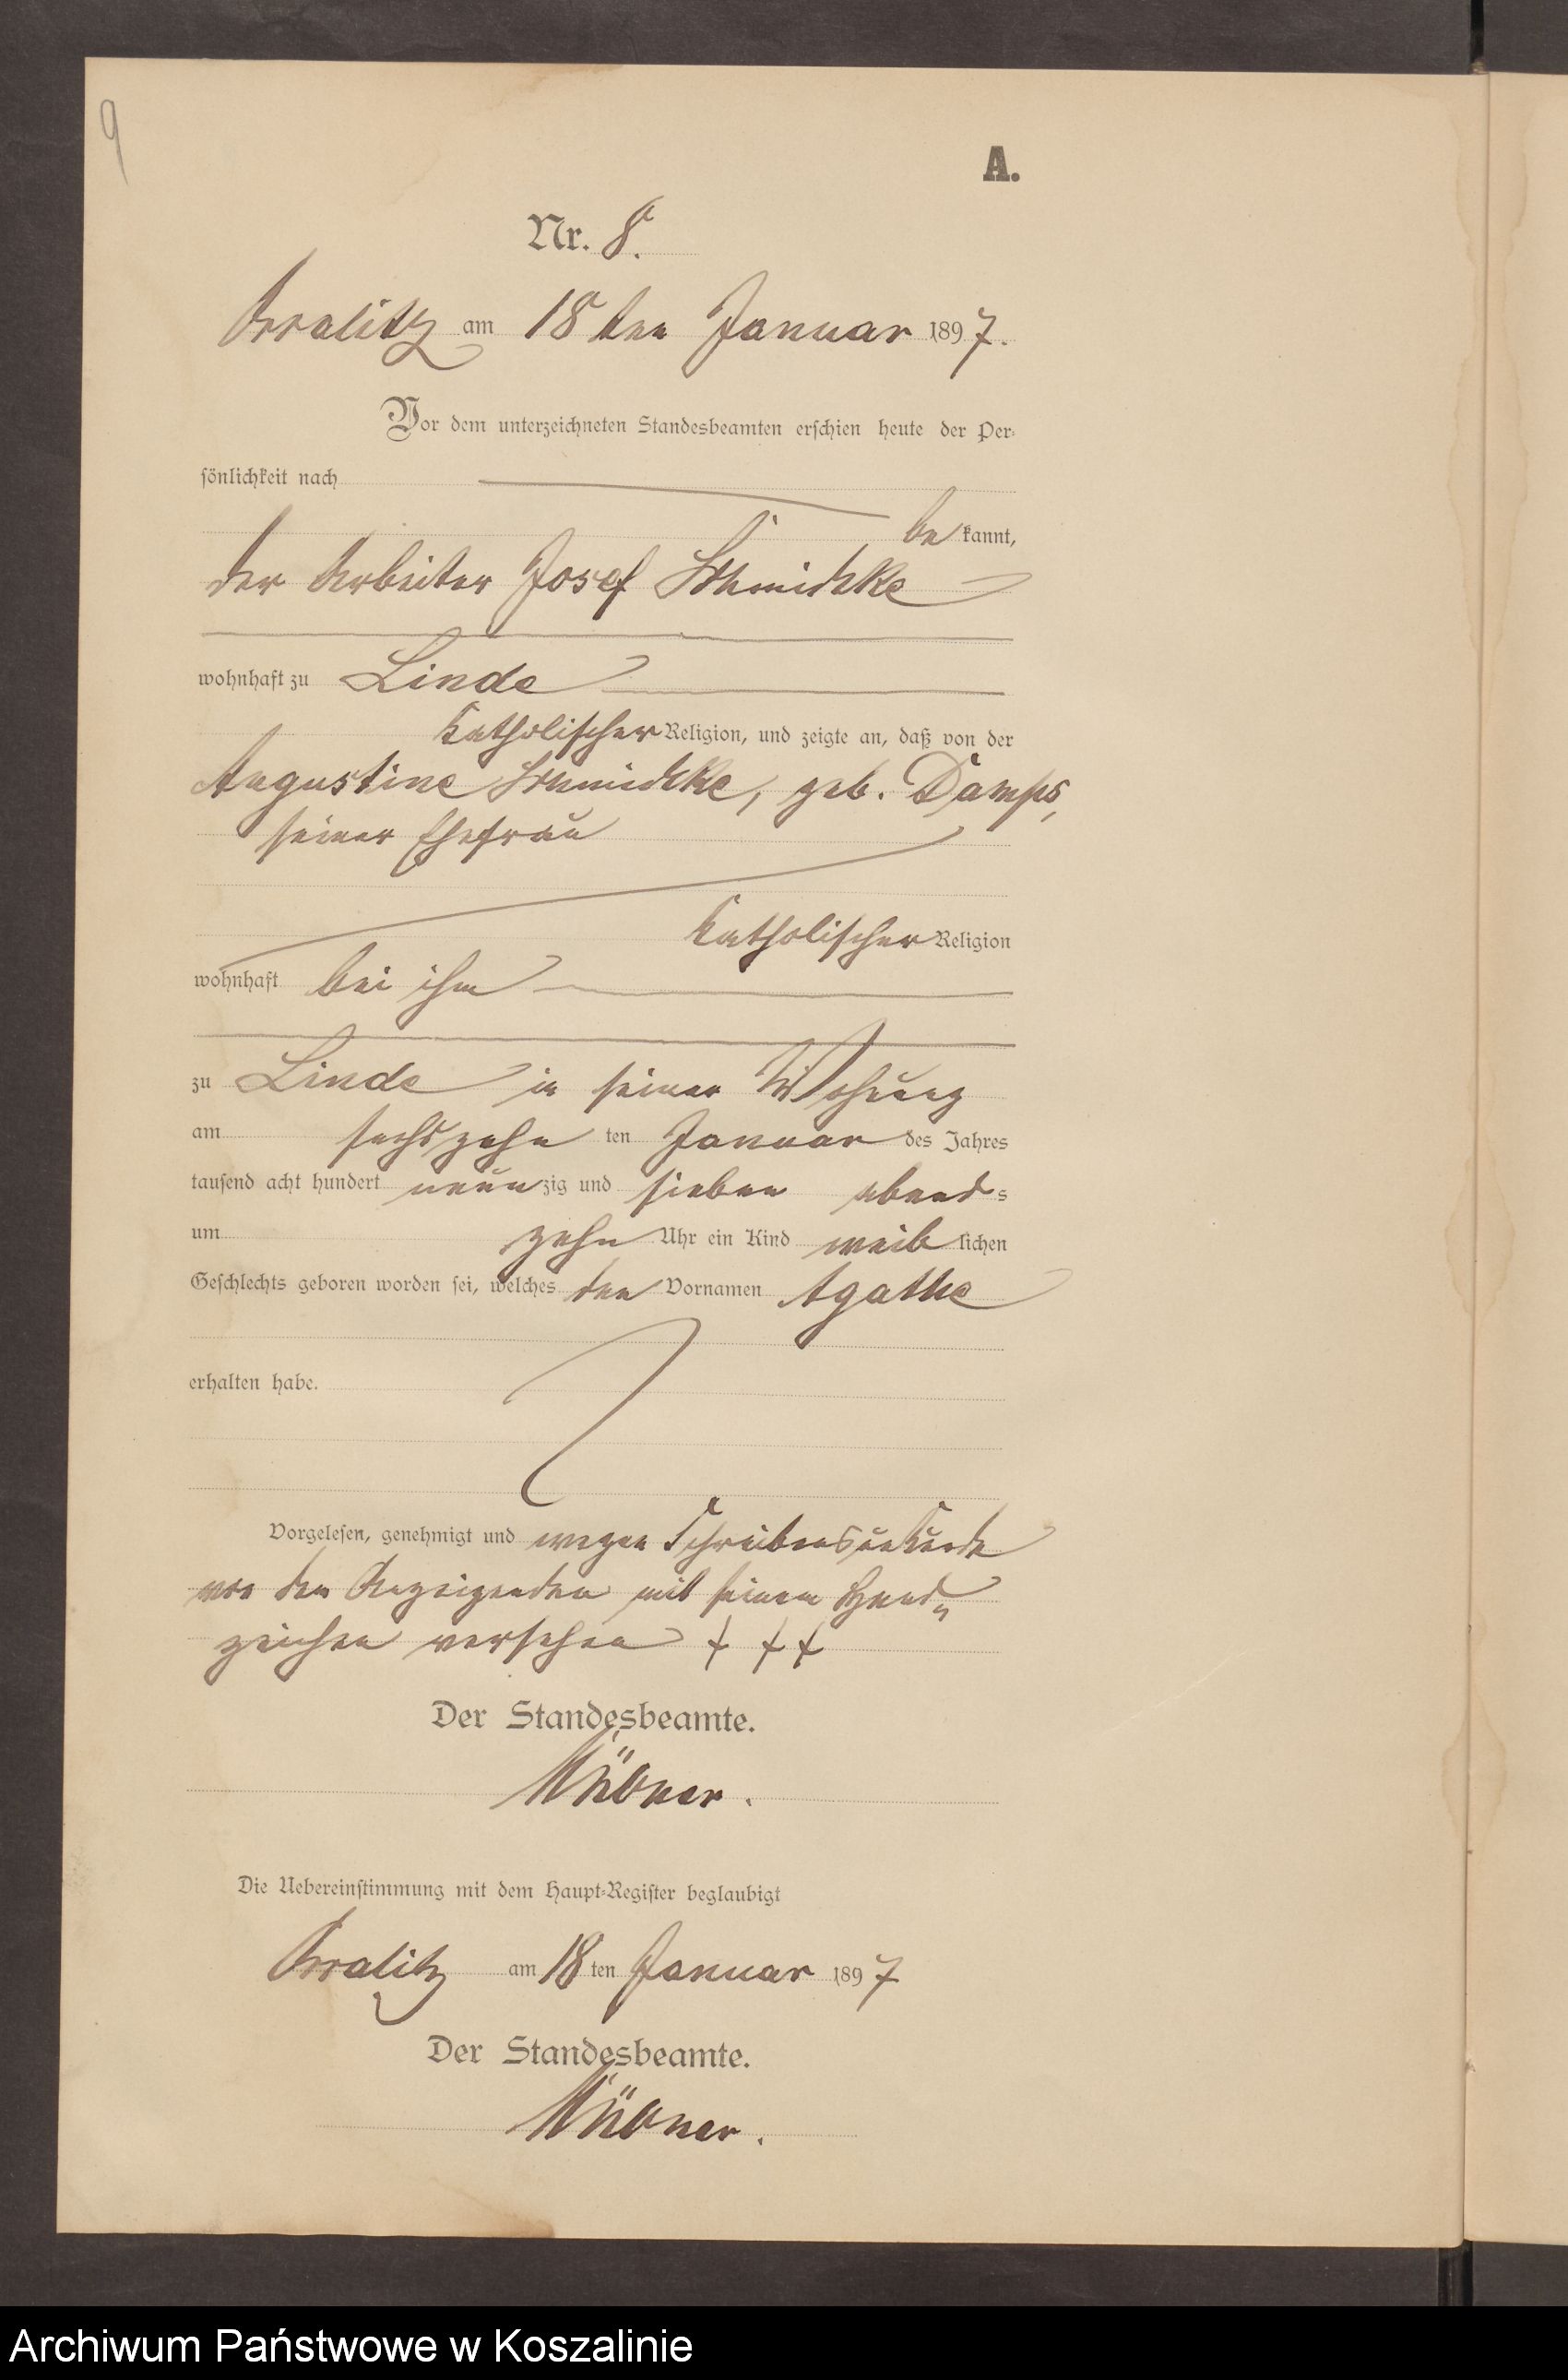 9
A.
Nr. 8.
am 18ten Januar 1897.
Vor dem unterzeichneten Standesbeamten erschien heute der Per-
sönlichkeit nach
be kannt,
der Arbeiter Josef Schmidtke
wohnhaft zu Linde
katholischer Religion, und zeigte an, daß von der
Augustine Schmidtke, geb. Damps,
seiner Ehefrau
katholischer Religion
wohnhaft bei ihm
zu Linde in seiner Wohnung
am sechszehn ten Januar des Jahres
tausend acht hundert neun zig und sieben abend s
um zehn Uhr ein Kind weib lichen
Geschlechts geboren worden sei, welches den Vornamen Agathe
erhalten habe.
Vorgelesen, genehmigt und wegen Schreibensunkunde
von dem Anzeigenden mit seinem Hand-
zeichen versehen + + +
Der Standesbeamte.
Die Uebereinstimmung mit dem Haupt-Register beglaubigt
am 18 ten Januar 1897
Der Standesbeamte.
Archiwum Państwowe w Koszalinie